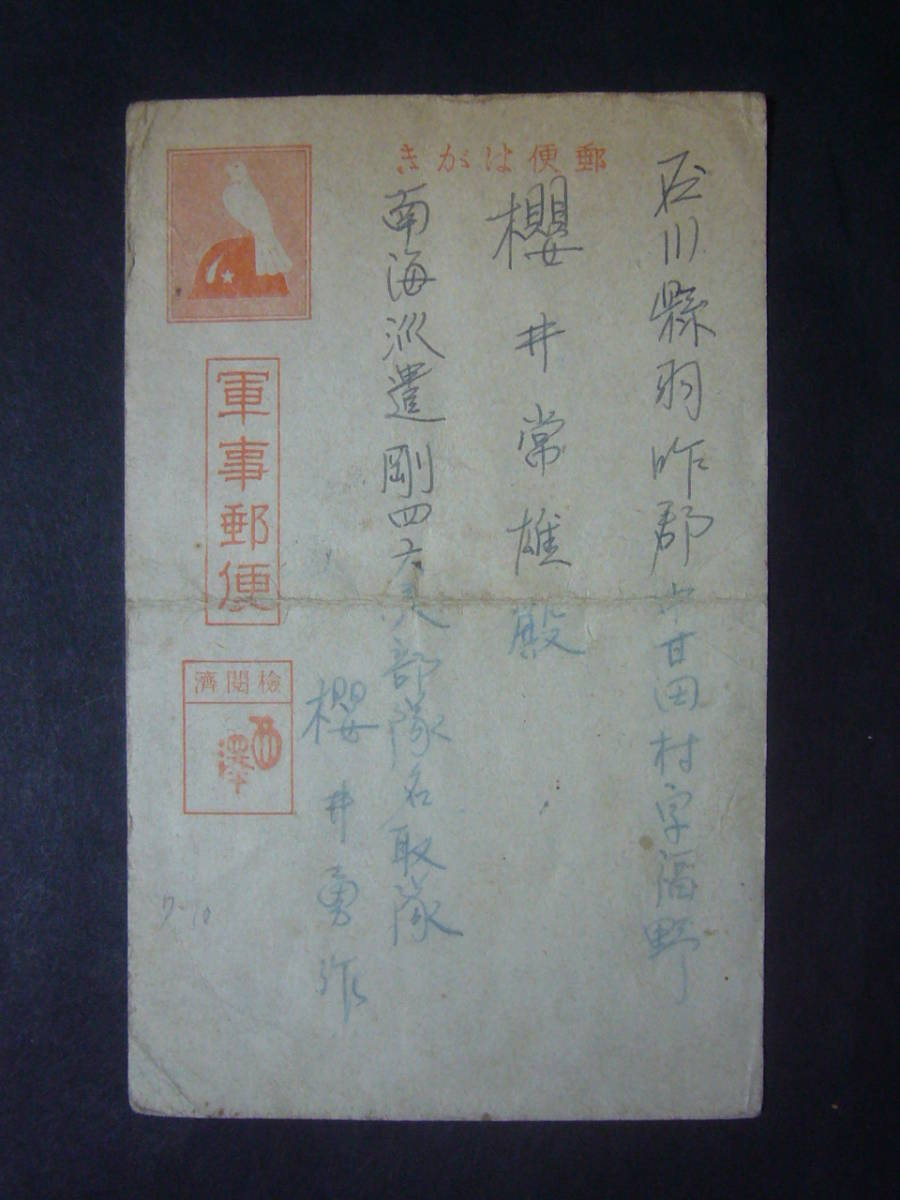 郵便はがき
石川縣羽咋郡中甘田村字福野
櫻井常雄殿
南海派遣剛四六部隊名取隊
櫻井勇作
軍事郵便
檢閲濟
西澤
7-10